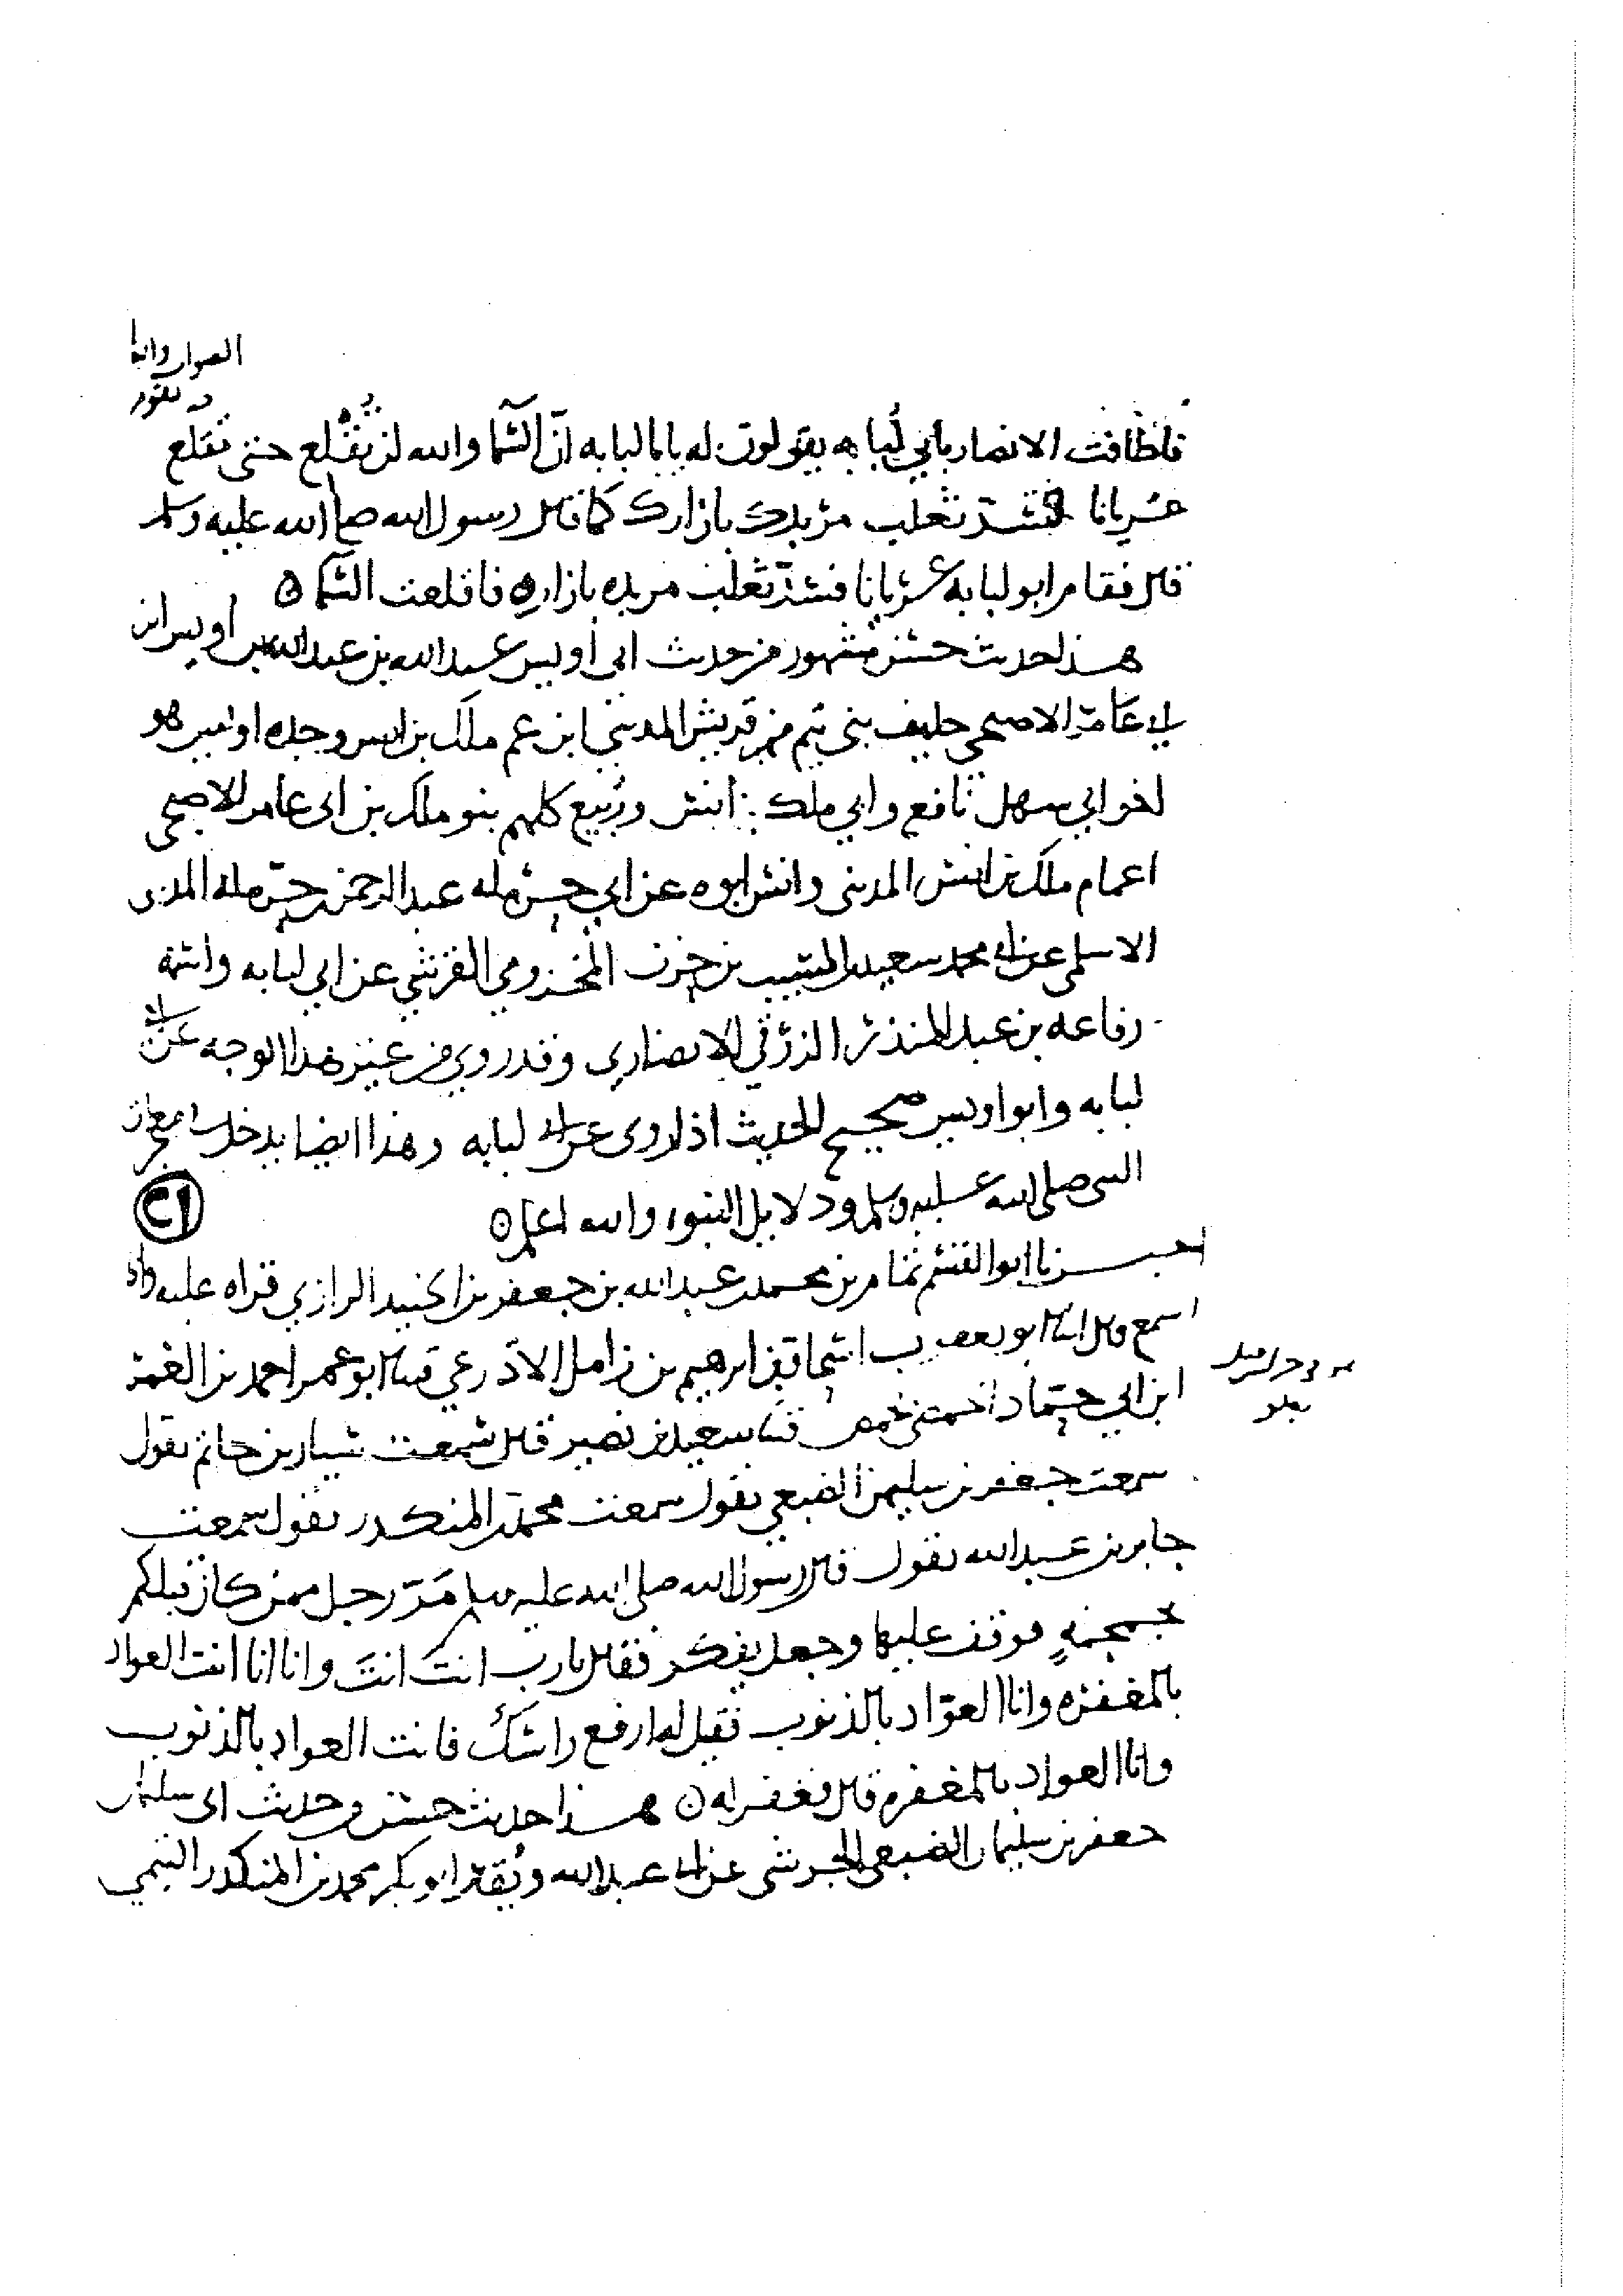 فاطافت الانصار بابي لبابه يقولون له يابا لبابه ان السما والله لن تقلع حتى تقوم
عريانا فتسد ثعلب مربدك بازارك كما قال رسول الله صلى الله عليه وسلم
قال فقام ابو لبابه عريانا فسد ثعلب مربده بازاره فاقلعت السما ه
هذا حديث حسن مشهور من حديث ابي اويس عبد الله بن عبد الله بن اويس ابن
ابي عامر الاصبحي حليف بني تيم من قريش المديني ابن عم ملك بن انس وجده اويس هو
اخو ابي سهل نافع وابي ملك انس وربيع كلهم بنو ملك بن ابي عامر الاصبحي
اعمام ملك بن انس المديني وانس ابوه عن ابي حرمله عبد الرحمن بن حرمله المدني
الاسلمي عن ابي محمد سعيد بن المسيب بن حزن المخزومي القرشي عن ابي لبابه واسمه
رفاعه بن عبد المنذر الزرقي الانصاري وقد روي من غير هذا الوجه عن ابي
لبابه وابو اويس صحيح الحديث اذا روى عن ابي لبابه وهذا ايضا يدخل في معجزات
النبي صلى الله عليه وسلم ودلايل النبوه والله اعلم ه
٢١
اخبرنا ابو القسم تمام بن محمد بن عبد الله بن جعفر بن الجنيد الرازي قراه عليه وانا
اسمع قال انبا ابو يعقوب اسحاق بن ابرهيم بن زامل الاذرعي قثنا ابو عمر احمد بن الغمر
ابن ابي حماد الحمصي بحمص قثنا سعيد بن نصير قال سمعت سيار بن حاتم يقول
سمعت جعفر بن سليمن الضبعي يقول سمعت محمد بن المنكدر يقول سمعت
جابر بن عبد الله يقول قال رسول الله صلى الله عليه وسلم مر رجل ممن كان قبلكم
بجمجمةٍ فوقف عليها وجعل يفكر فقال يا رب انتَ انتَ وانا انا انت العواد
بالمغفره وانا العوّاد بالذنوب فقيل له ارفع راسك فانت العواد بالذنوب
وانا العواد بالمغفره قال فغفر له ه هذا حديث حسن من حديث ابي سليمان
جعفر بن سليمان الضبعي الجرشي عن ابي عبد الله ويقال ابو بكر محمد بن المنكدر التيمي